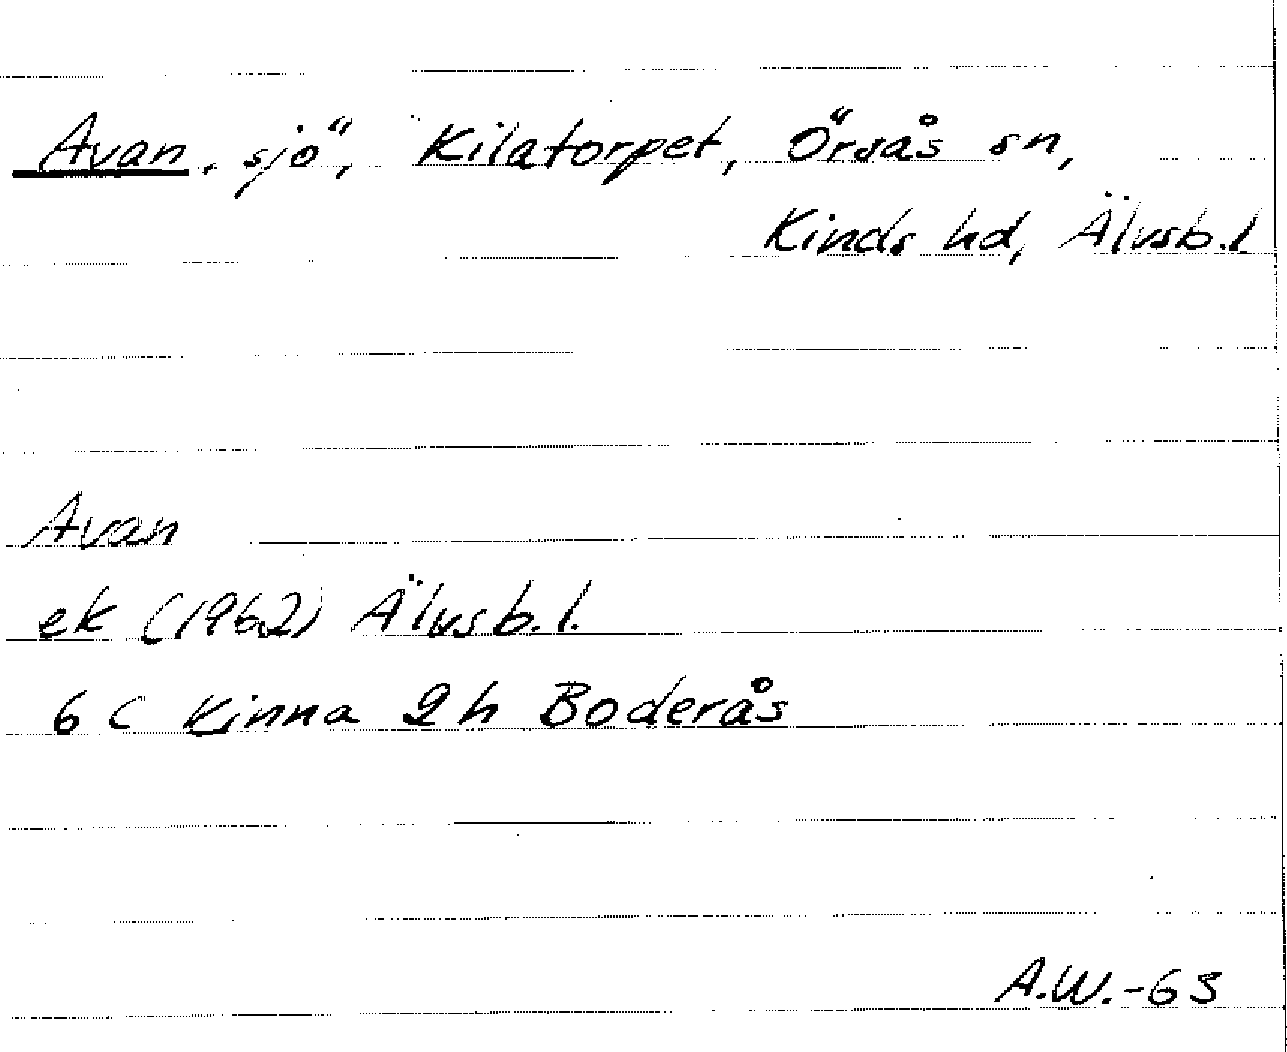 Avan, sjö, Kilatorpet, Örsås sn,
Kinds hd, Älvsb. l
Avan
ek (1962) Älvsb. l.
6 C Kinna 2h Boderås
A.W.-63